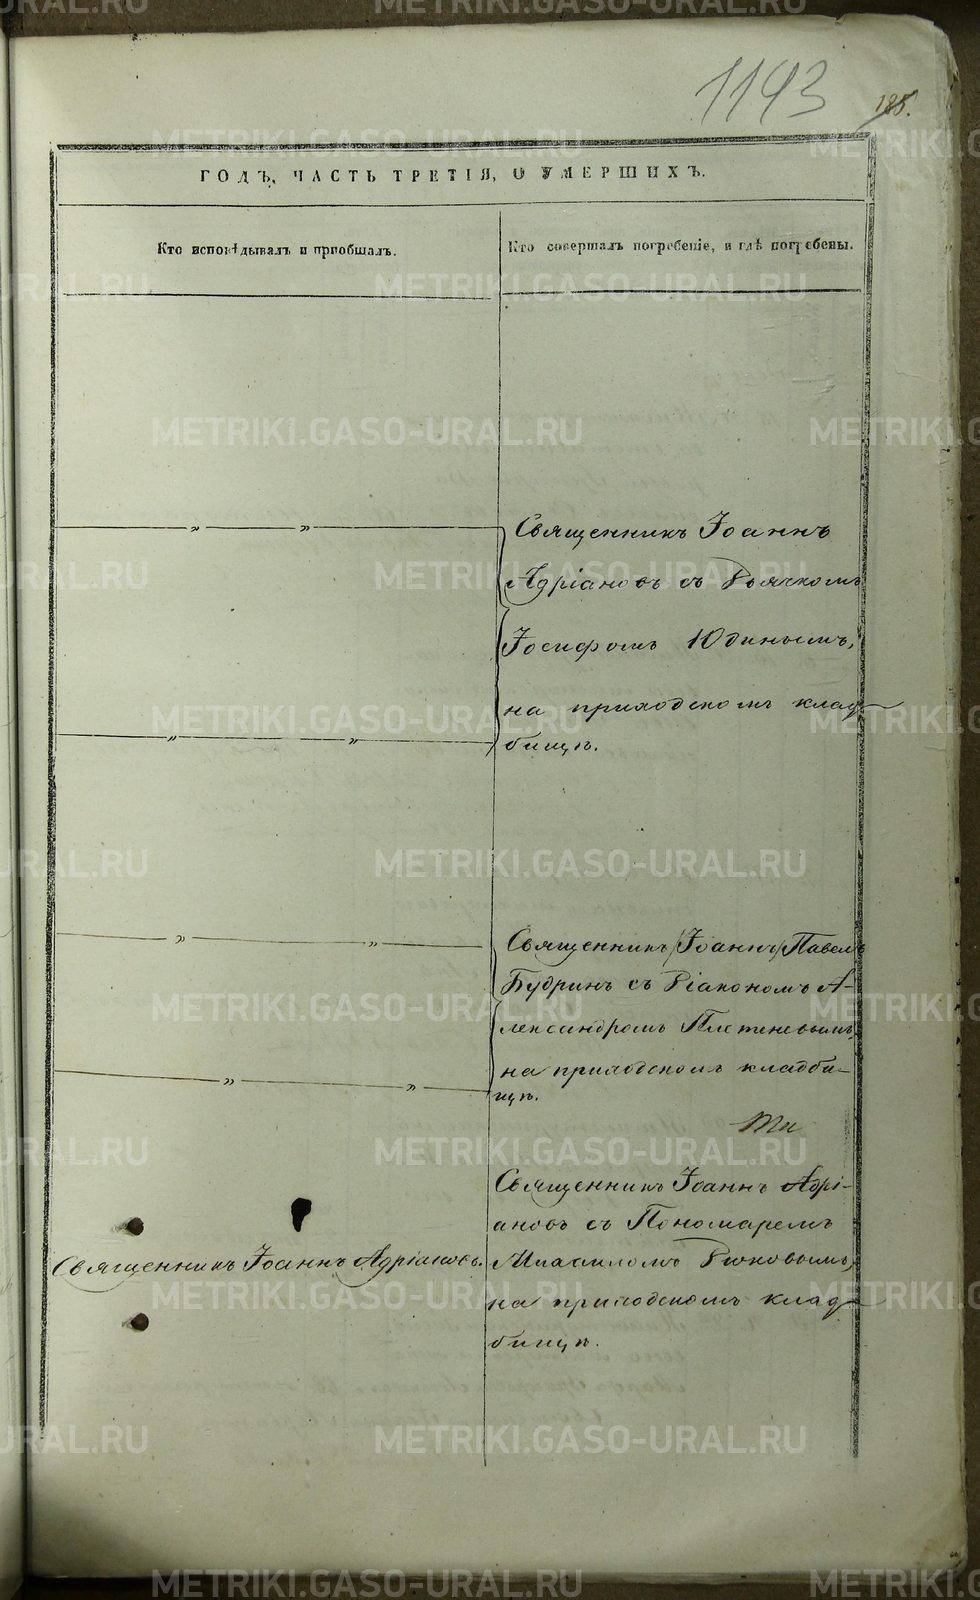 1193
185.
ГОДЪ, ЧАСТЬ ТРЕТІЯ, О УМЕРШИХЪ.
Кто исповѣдывалъ и пріобщалъ.
Кто совершалъ погребеніе, и гдѣ погребены.
„ „
Священникъ Іоаннъ
Адріановъ съ Дьячкомъ
Іосифомъ Юдинымъ,
на приходскомъ клад-
бищѣ.
„ „
„ „
Священникъ /Іоаннъ/ Павелъ
Будринъ съ Діакономъ А-
лександромъ Плетеневымъ,
на приходскомъ кладби-
щѣ.
„ „
Священникъ Іоаннъ Адріановъ.
Священникъ Іоаннъ Адрі-
ановъ съ Пономаремъ
Михаиломъ
на приходскомъ клад-
бищѣ.
METRIKI.GASO-URAL.RU